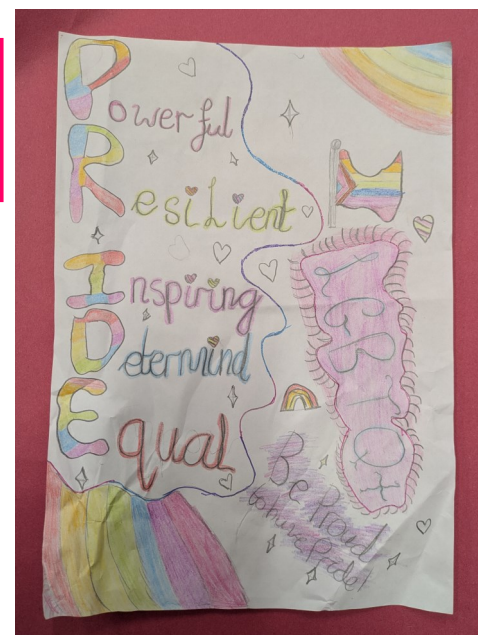 Powerful
Resilient
Inspiring
Determind
Equal
LGBTQ+
Be Proud
to have Pride!